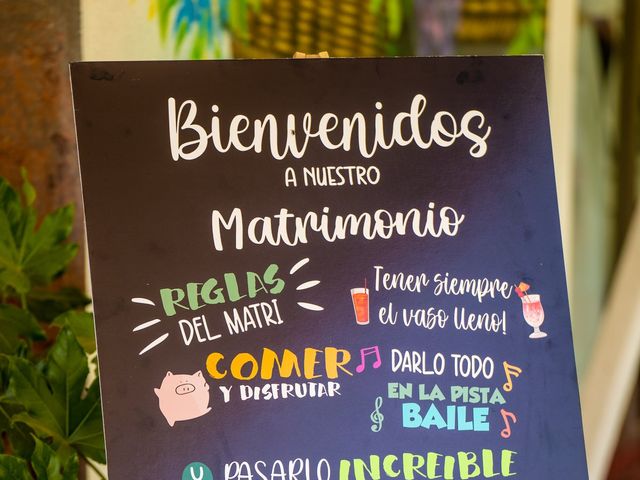 Bienvenidos
A NUESTRO
Matrimonio
REGLAS
DEL MATRI
Tener siempre
el vaso lleno!
COMER
Y DISFRUTAR
DARLO TODO
EN LA PISTA
BAILE
Y PASARLO INCREIBLE